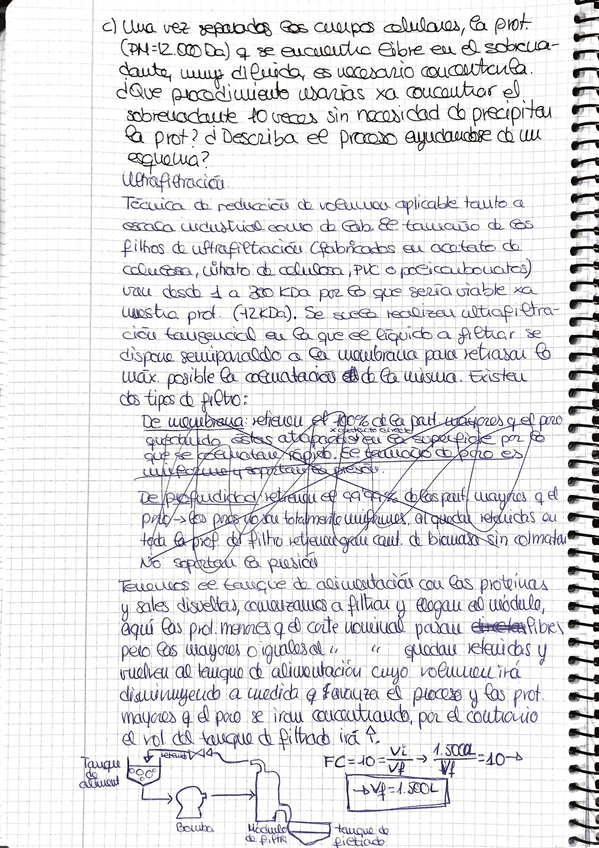 c) Una vez separados los cuerpos celulares, la prot.
(PM=12.000 Da) q se encuentra libre en el sobrena-
dante, muy diluida, es necesario concentrarla.
¿Que procedimiento usarías xa concentrar el
sobrenadante 10 veces sin necesidad de precipitar
la prot? ¿Describa el proceso ayudandose de un
esquema?
Ultrafiltración
Técnica de reducción de volumen aplicable tanto a
escala industrial como de lab. El tamaño de los
filtros de ultrafiltración (fabricados en acetato de
celulosa, nitrato de celulosa, PVC o policarbonatos)
van desde 1 a 300 KDa por lo que sería viable xa
nuestra prot. (12KDa). Se suele realizar ultrafiltra-
ción tangencial en la que el líquido a filtrar se
dispone semiparalelo a la membrana para retrasar lo
máx. posible la colmatación de la misma. Existen
dos tipos de filtro:
De membrana: retienen el 100% de la part. mayores q el poro
quedando estas atrapadas en la superficie por lo
que se colmatan rápido. El tamaño de poro es
uniforme y soportan la presión.
De profundidad: retienen el 99'99% de las part. mayores q el
poro → los poros no son totalmente uniformes, al quedar retenidas en
toda la prof. del filtro retienen gran cant. de biomasa sin colmatar
No soportan la presión
Tenemos el tanque de alimentación con las proteínas
y sales disueltas, comenzamos a filtrar y llegan al módulo,
aquí las prot. menores q el corte nominal pasan libres
pero las mayores o iguales al " " quedan retenidas y
vuelven al tanque de alimentación cuyo volumen irá
disminuyendo a medida q avanza el proceso y las prot.
mayores q el poro se iran concentrando, por el contrario
el vol del tanque de filtrado irá ↑.
Tanque de aliment
retenido
Bomba
Módulo de filtro
tanque de filtrado
FC=10= Vi/Vf → 1.500L/Vf = 10 →
→ Vf=1.500L